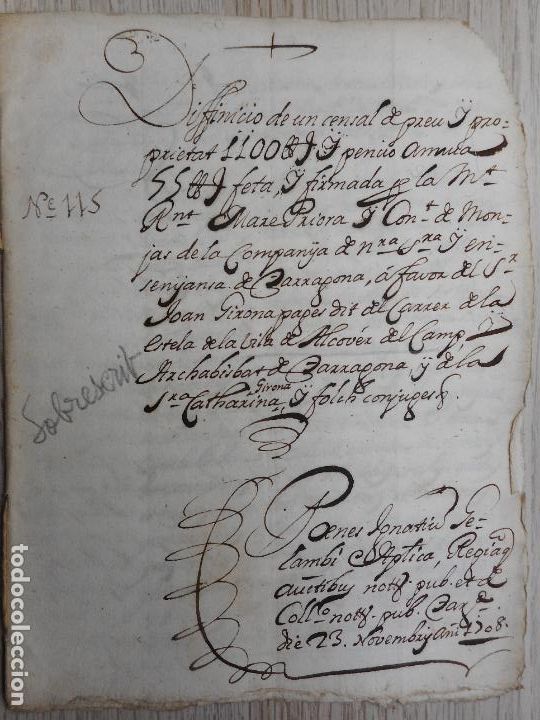 Diffinicio de un censal de preu y pro-
prietat 1100 ₶ J y pencio Annua
55 ₶ J feta, y firmada per la Mt
Rnt Mare Priora y Cont de Mon-
jas de la Companya de nra Sra y en-
senyansa de Tarragona, á favor del Sr
Joan Girona pages dit del Carrer de la
Estela de la Vila de Alcovér del Camp y
Archabisbat de Tarragona y de la
Sra Catharina Girona y folch conjuges.
Nº 115
Sobrescrit
Poenes Ignatiu Ge-
lambi Aplica, Regiaq
auctibus nots. pub. et de
Collo nots. pub. Tar
die 23. Novembris Ani 1708.
todocoleccion.net